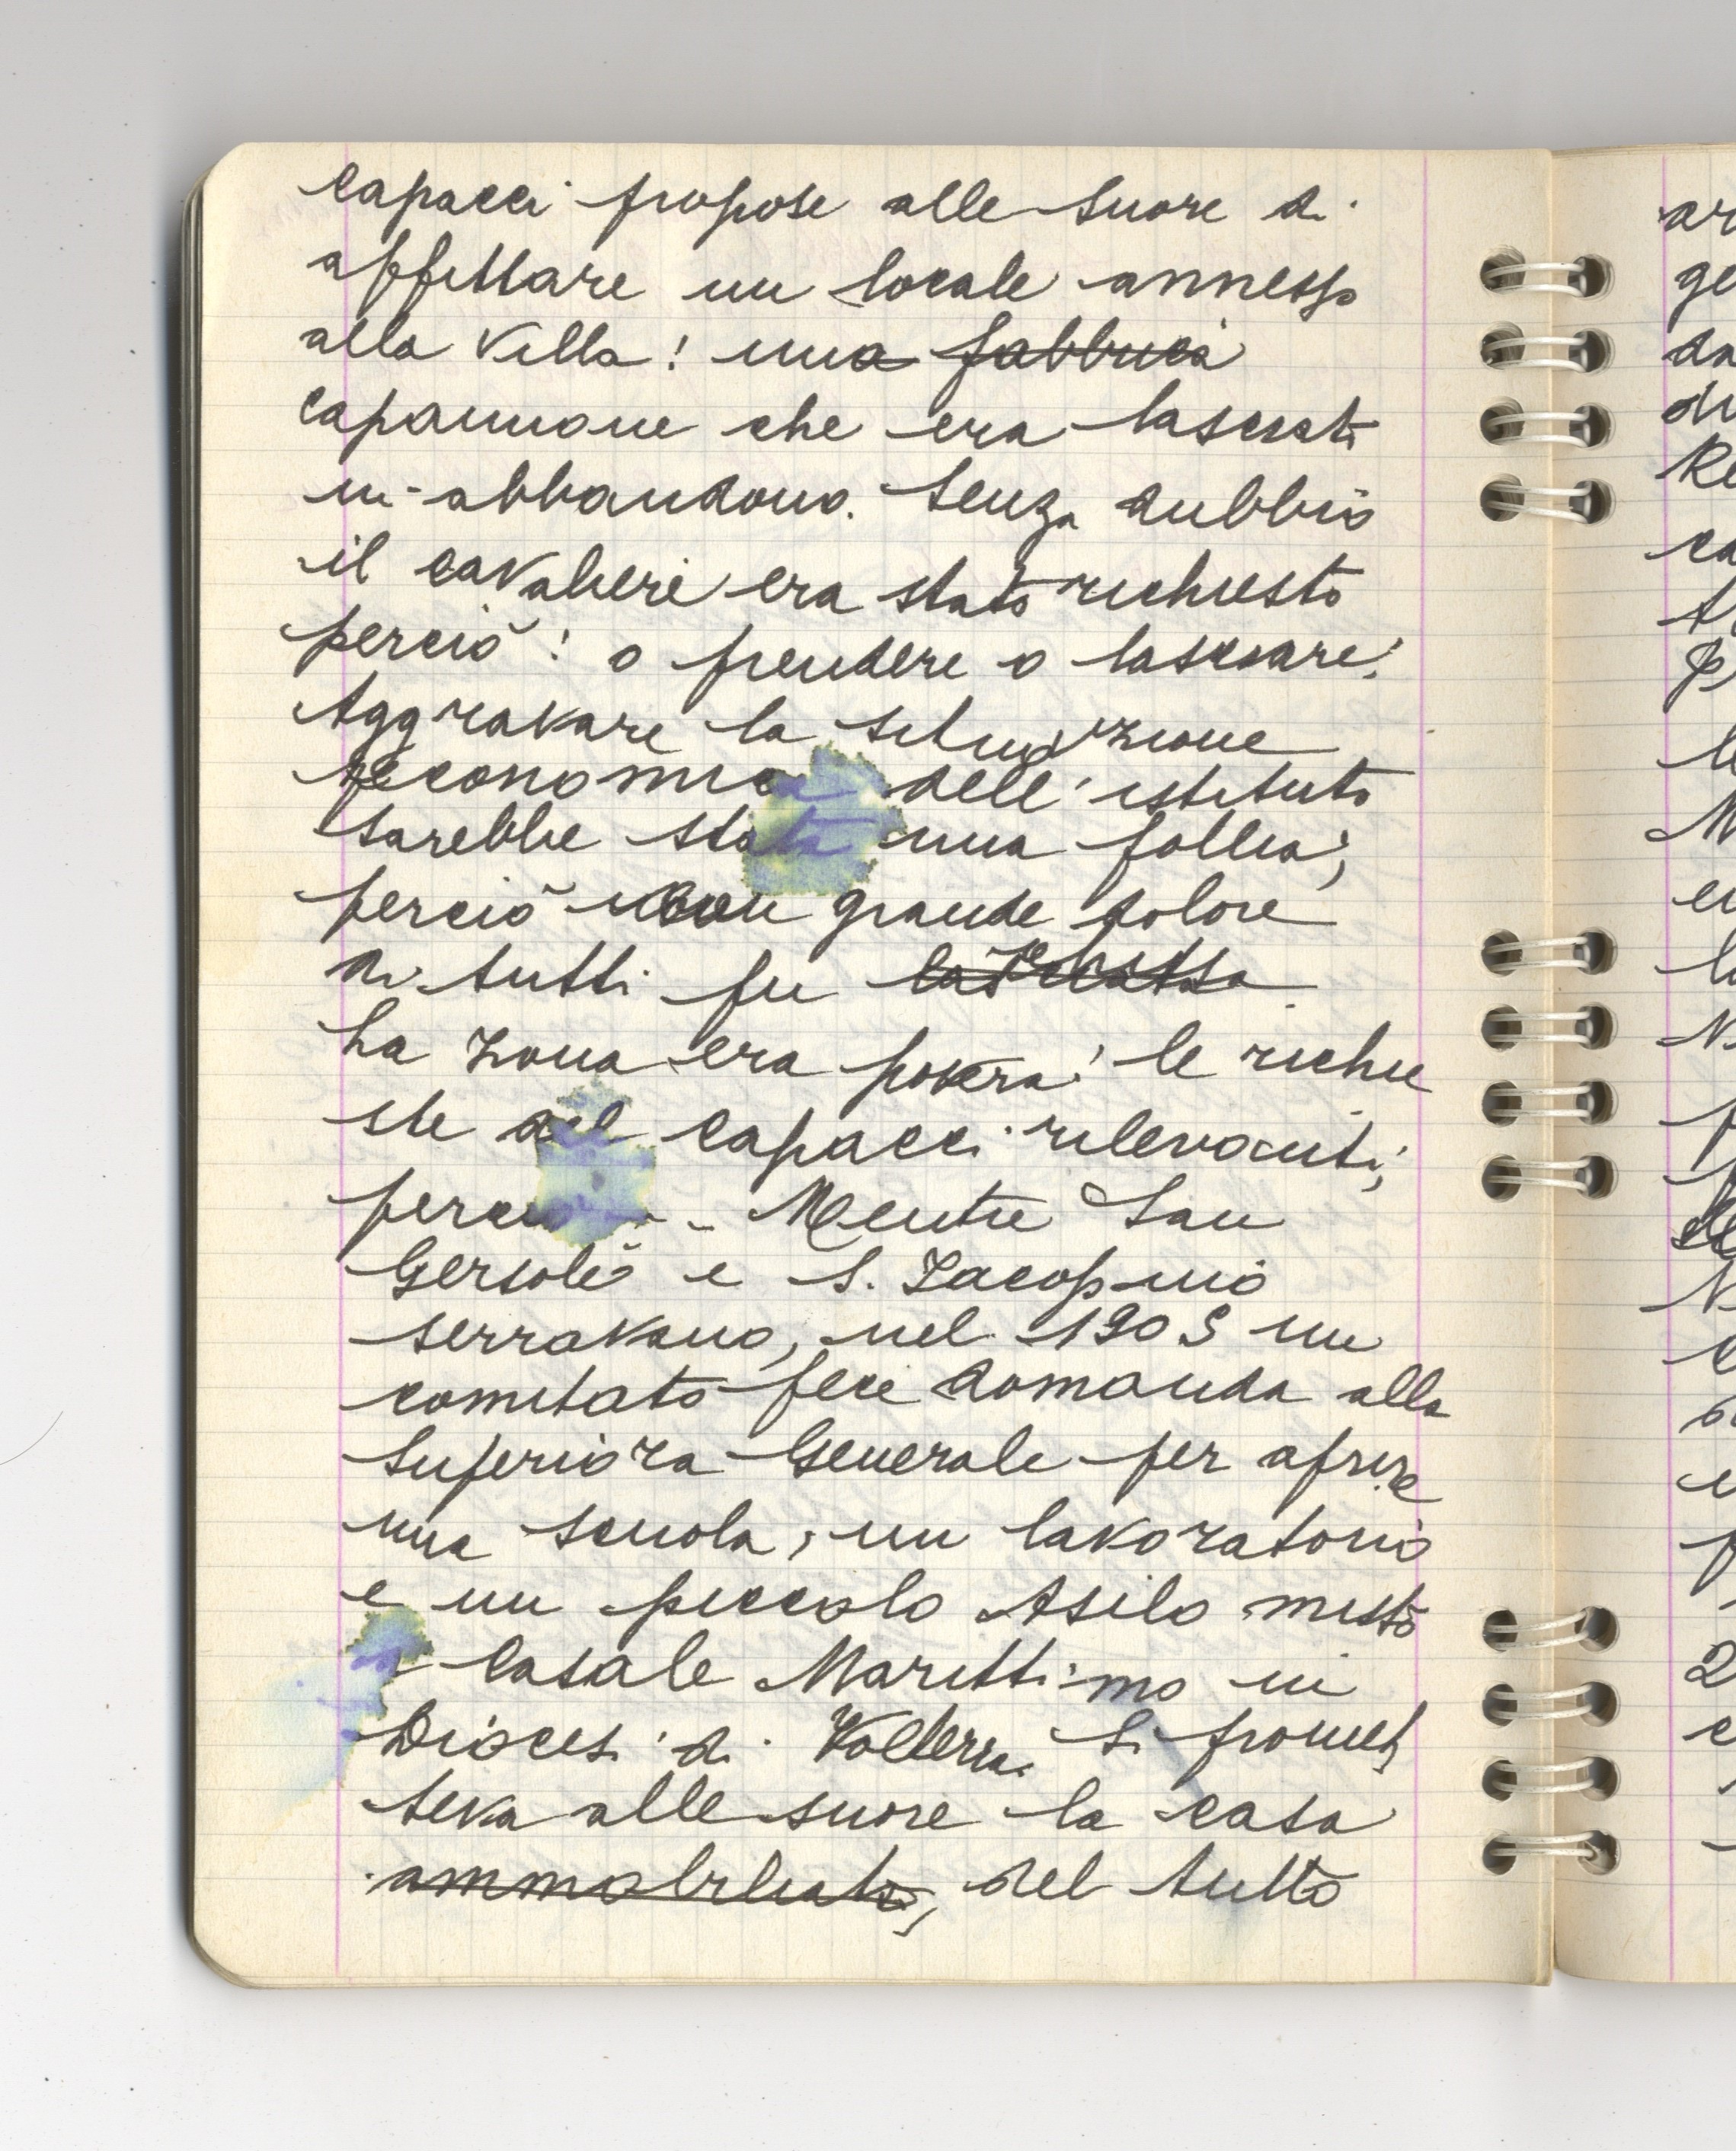 Capacci propose alle suore di
affittare un locale annesso
alla villa: una fabbrica
capannone che era lasciato
in abbandono. Senza dubbio
il cavaliere era stato richiesto
perciò: o prendere o lasciare.
Aggravare la situazione
economica dell'istituto
sarebbe stata una follia;
perciò con grande dolore
di tutti fu
La zona era povera: le richie
ste del Capacci rilevanti;
perciò - Mentre San
Gersolè e S. Jacopino
serravano, nel 1905 un
comitato fece domanda alla
Superiora Generale per aprire
una scuola, un lavoratorio
e un piccolo Asilo misto
a Casale Marittimo in
Diocesi di Volterra. Si promet
teva alle suore la casa
ammobiliata, del tutto
ar
ge
da
Re
ca
P
le
N
l
N
p
N
e
p
2
e